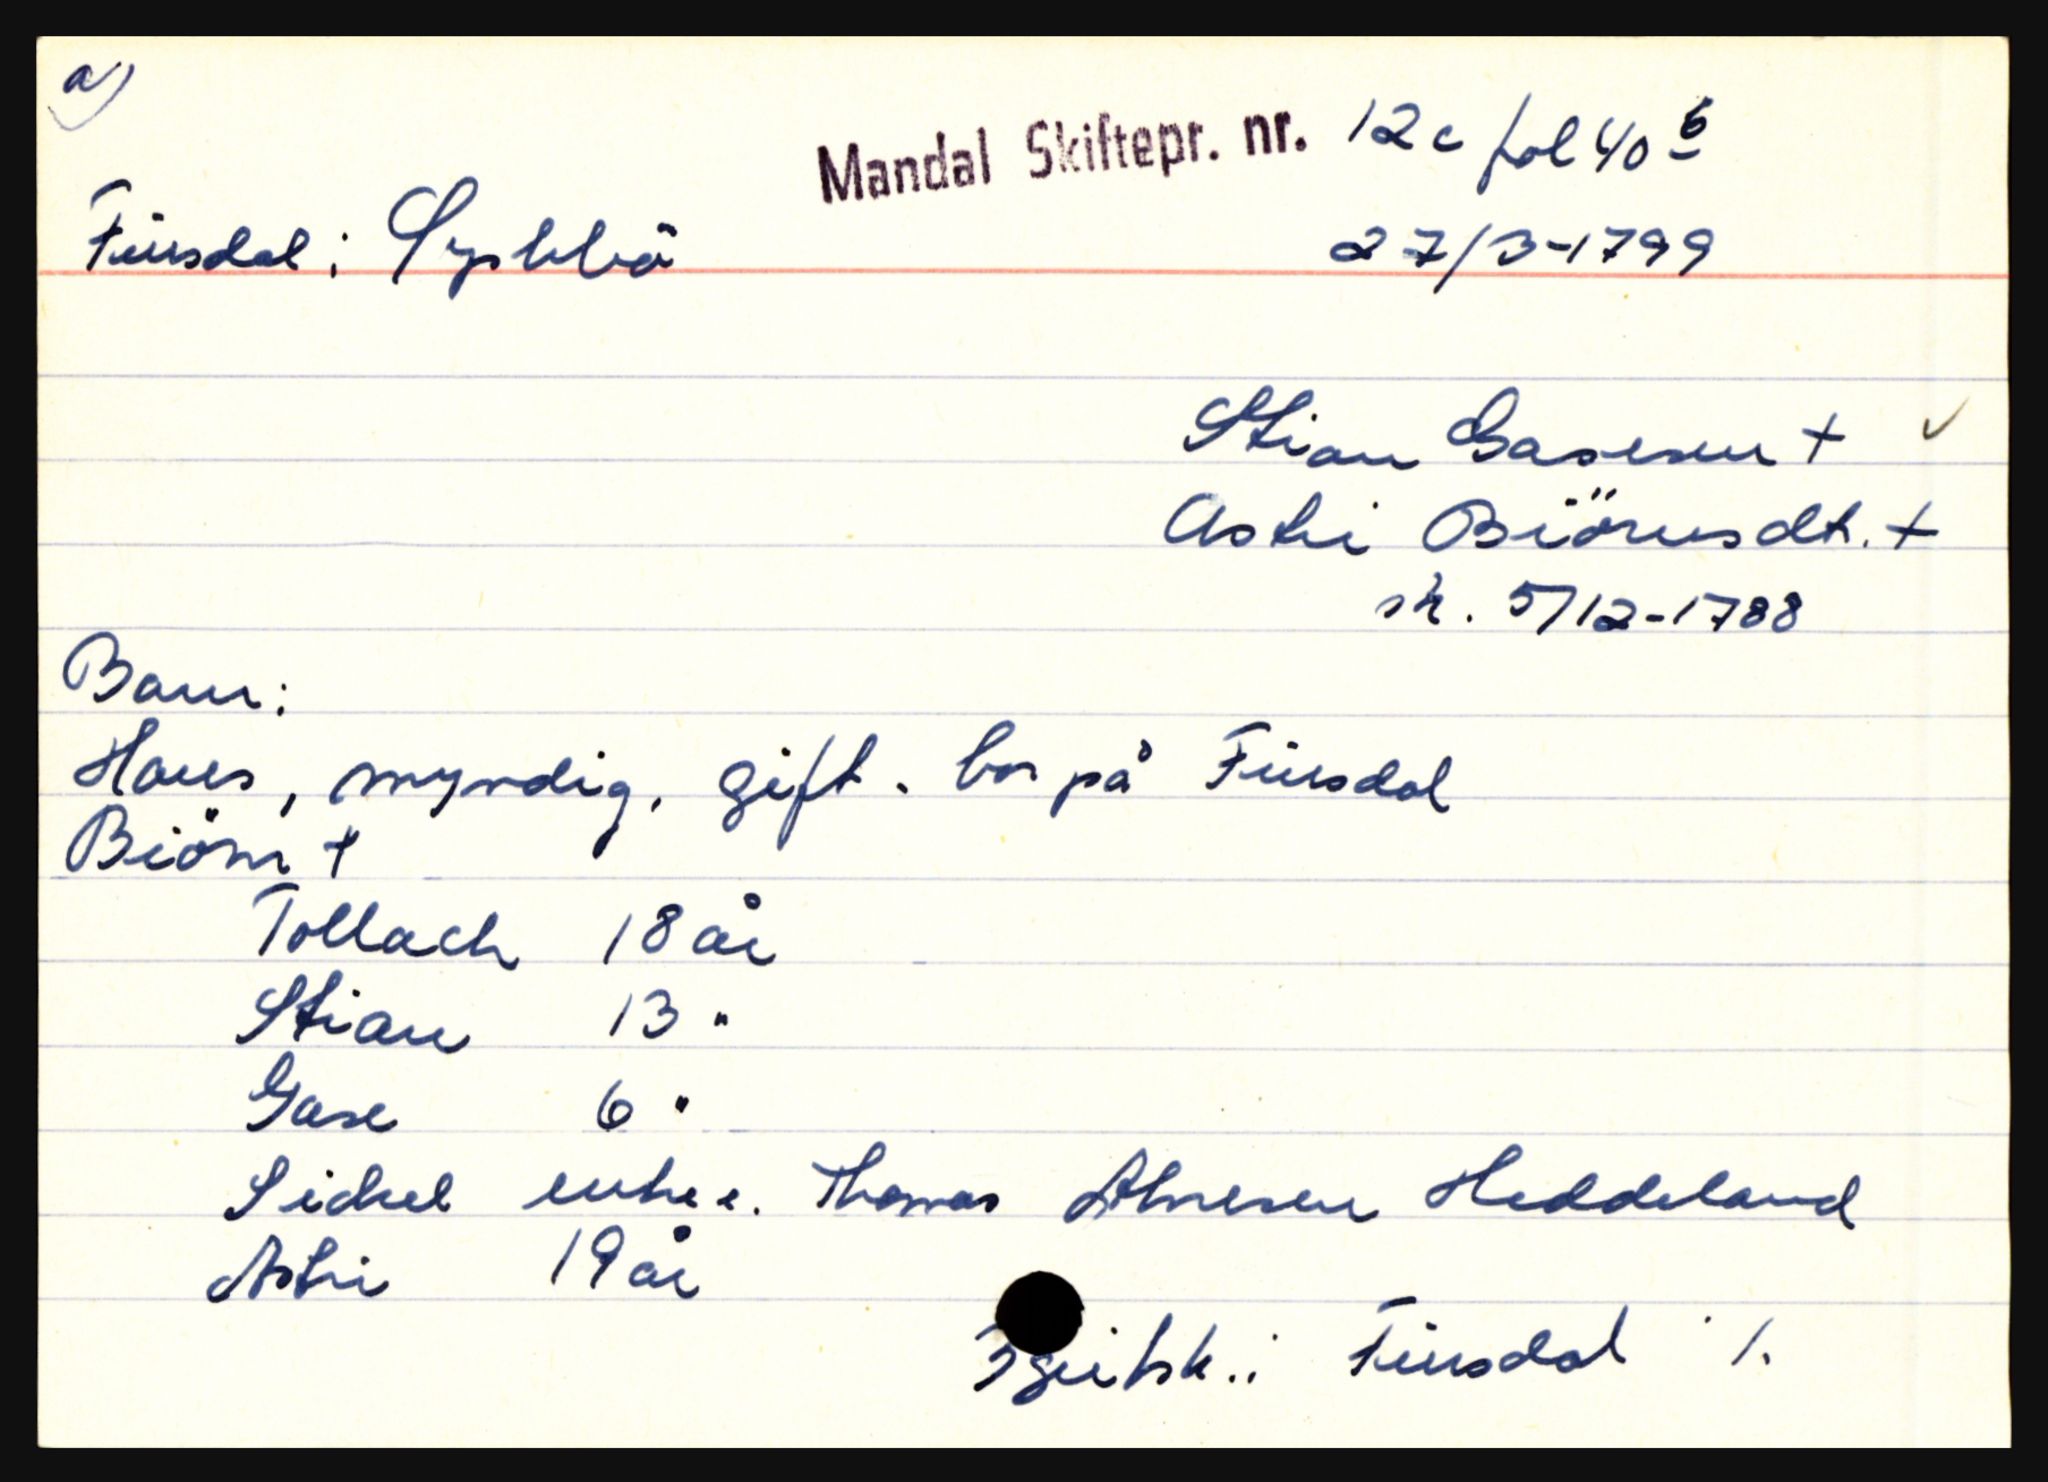 a)
Mandal Skiftepr. nr. 12c fol 40 b
Finsdal i Lyshbö 27/3-1799
Stian Gasesen +
Astri Biörnsdt. +
sk. 5/12-1788
Barn:
Hans, myndig, gift. bor på Finsdal
Biörn +
Tollach 18 år
Stian 13 "
Gase 6 "
Sichel enke e. Thomas Ahnesen Heddeland
Astri 19 år
Finsdal ./.